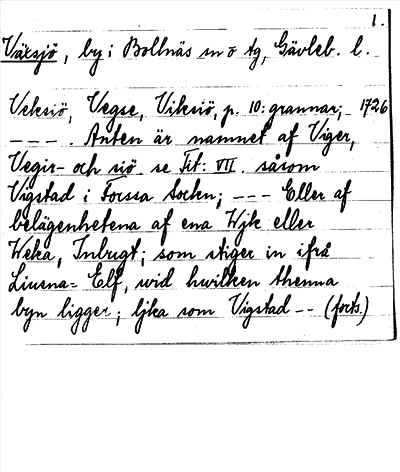 1.
Växsjö, by i Bollnäs sn o tg, Gävleb. l.
Veksiö, Vegse, Viksiö, p. 10: grannar; 1726
---. Anten är namnet af Viger,
Vegir- och siö se Tit: VII. såsom
Vigstad i Forssa Sockn; --- Eller af
belägenhetena af ena Wjk eller
Weka, Inbugt; som stiger in ifrå
Liusna= Elf, wid hwilken thenna
byn ligger; ljka som Vigstad -- (forts.)